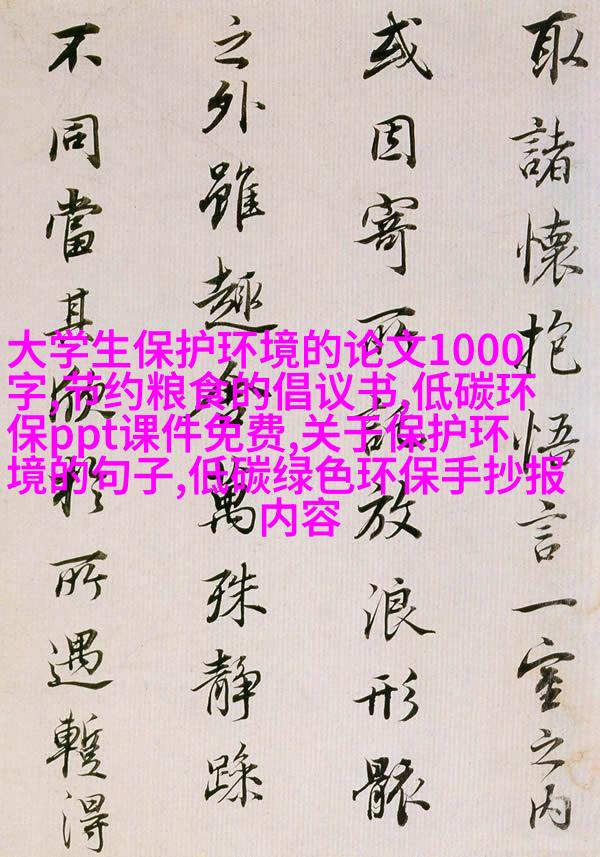 取諸懷抱悟言一室之内
或因寄所託放浪形骸
之外雖趣舍萬殊静躁
不同當其欣於所遇蹔得
大学生保护环境的论文1000
字,节约粮食的倡议书,低碳环
保ppt课件免费,关于保护环
境的句子,低碳绿色环保手抄报
内容